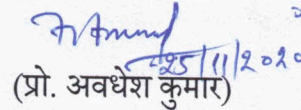 25/11/2020
(प्रो. अवधेश कुमार)